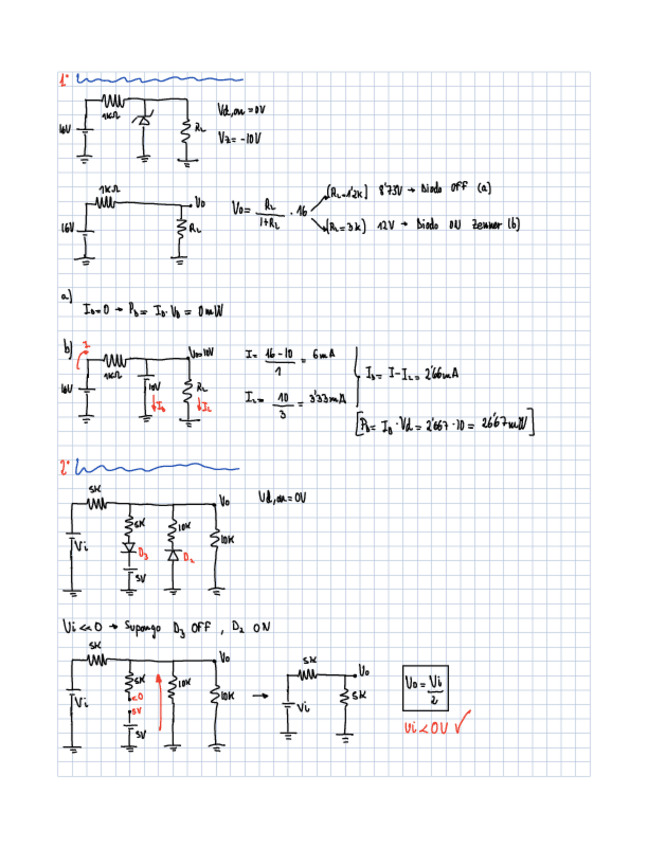 1º
1KΩ
16V
RL
Vd,on = 0V
Vz = -10V
1KΩ
16V
Vo
RL
Vo = RL / 1+RL · 16
[RL=1'2K] 8'73V → Diodo OFF (a)
[RL=3K] 12V → Diodo ON Zenner (b)
a)
ID=0 → PD = ID · VD = 0mW
b)
I
1KΩ
16V
10V
ID
Vo=10V
RL
IL
I = 16-10 / 1 = 6mA
IL = 10 / 3 = 3'33mA
ID = I-IL = 2'66mA
[PD = ID · Vd = 2'667 · 10 = 26'67mW]
2º
5K
Vi
5K
D3
5V
10K
D2
10K
Vo
Vd,on = 0V
Vi<<0 → Supongo D3 OFF , D2 ON
5K
Vi
5K
<0
5V
5V
10K
10K
Vo
→
5K
Vi
Vo
5K
Vo = Vi / 2
Vi<0V ✓